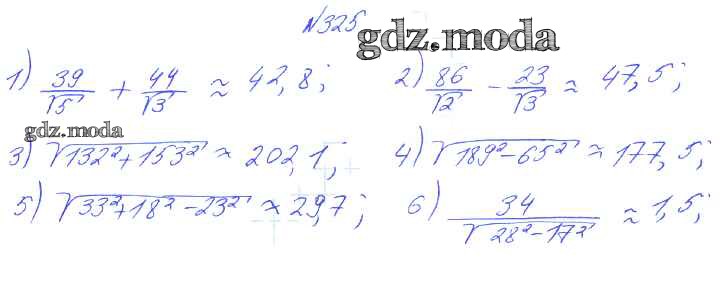 №325
gdz.moda
1) 39/√5 + 44/√3 ≈ 42,8; 2) 86/√2 - 23/√3 ≈ 47,5;
gdz.moda
3) √132²+153² ≈ 202,1; 4) √189²-65² ≈ 177,5;
5) √33²+18²-23² ≈ 29,7; 6) 34/√28²-17² ≈ 1,5;